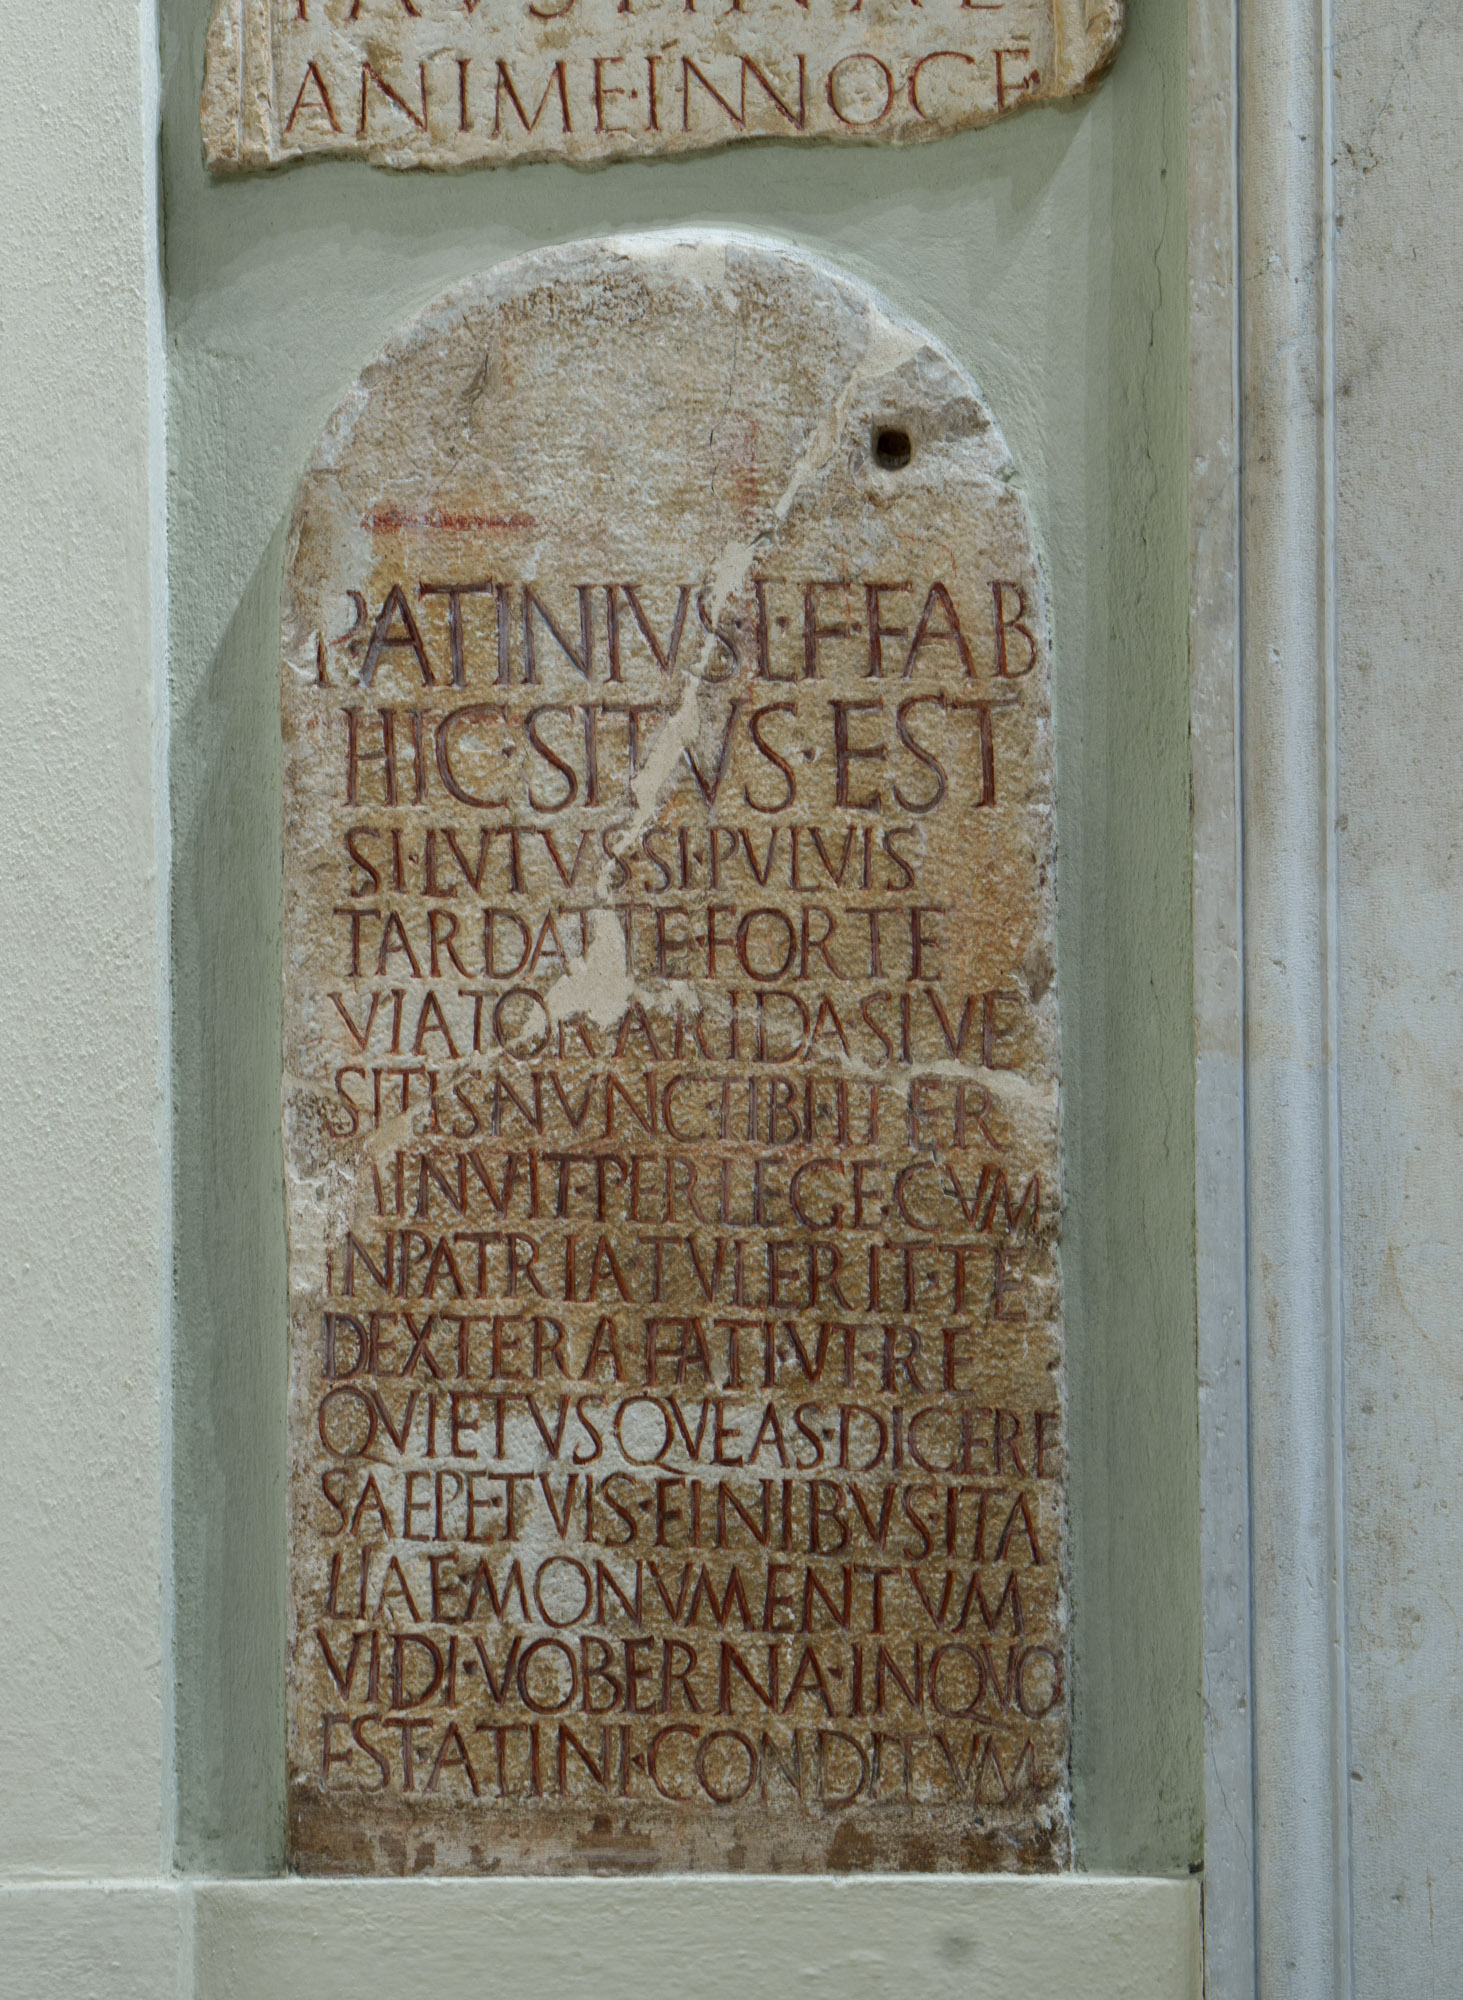 FAVSTINAE
ANIME·INNOCE
P·ATINIVS·L·F·FAB
HIC·SITVS·EST
SI·LVTVS·SI·PVLVIS
TARDAT·TE·FORTE
VIATOR·ARIDA·SIVE
SITIS·NVNC·TIBI·ITER
MINVIT·PERLEGE·CVM
IN PATRIA TVLERIT·TE
DEXTERA·FATI·VT·RE
QVIETVS·QVEAS·DICERE
SAEPE·TVIS·FINIBVS·ITA
LIAE·MONVMENTVM
VIDI·VOBERNA·IN QVO
EST·ATINI·CONDITVM